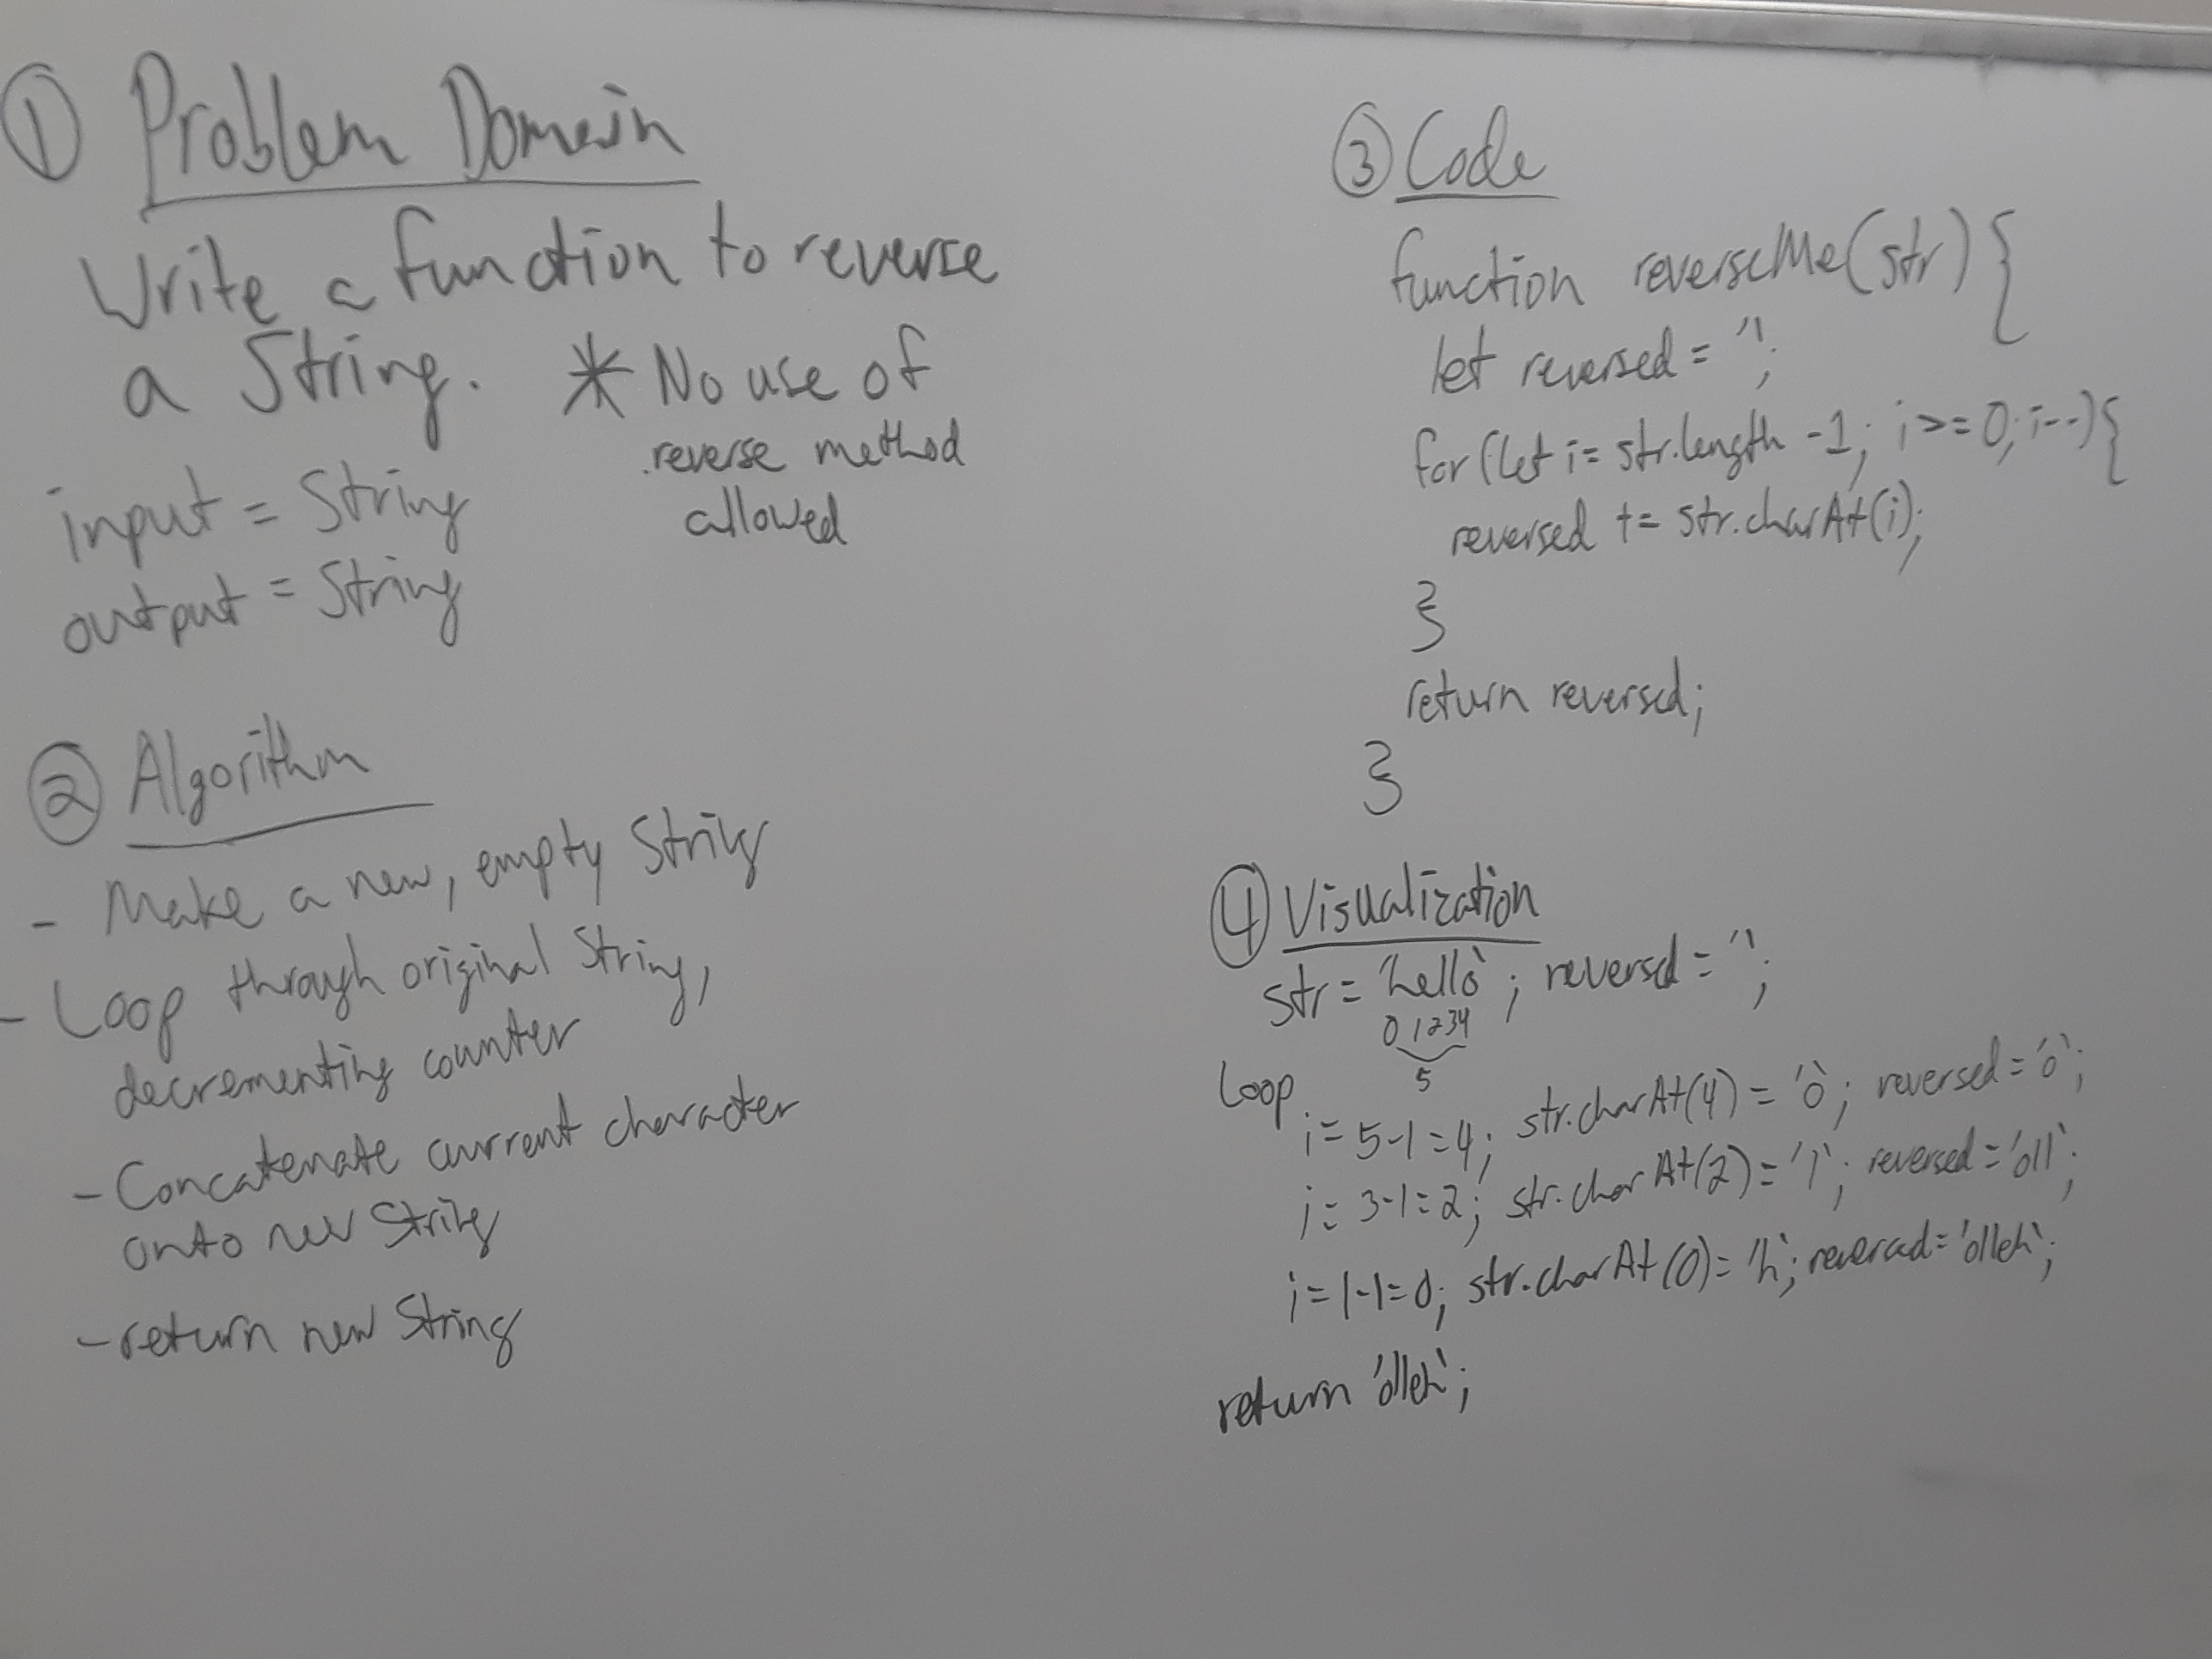 ① Problem Domain
Write a function to reverse
a String. * No use of
.reverse method
allowed
input = String
output = String
② Algorithm
- Make a new, empty String
- Loop through original String,
decrementing counter
- Concatenate current character
onto new String
- return new String
③ Code
function reverseMe(str) {
let reversed = '';
for (let i = str.length -1; i >= 0; i--) {
reversed += str.charAt(i);
}
return reversed;
}
④ Visualization
str = 'hello'; reversed = '';
0 1 2 3 4
5
Loop
i = 5-1 = 4; str.charAt(4) = 'o'; reversed = 'o';
i = 3-1 = 2; str.charAt(2) = 'l'; reversed = 'oll';
i = 1-1 = 0; str.charAt(0) = 'h'; reversed = 'olleh';
return 'olleh';